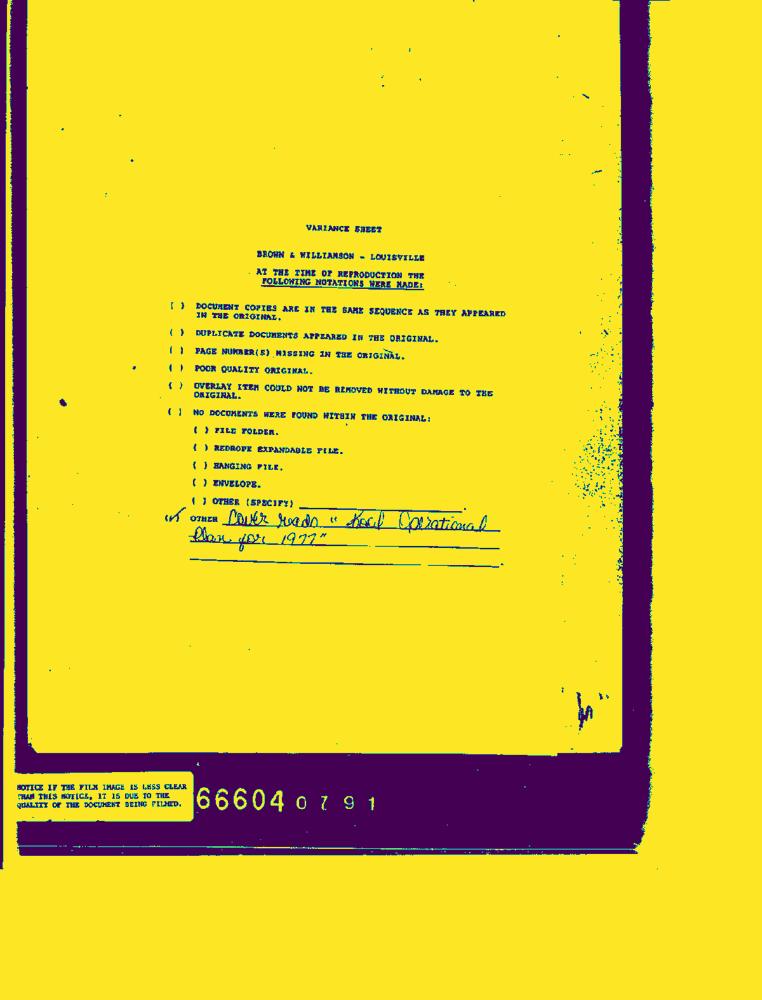 VARIANCE SHEET
BROWN & WILLIAMSON - LOUISVILLE
AT THE TIME OF REPRODUCTION THE
FOLLOWING NOTATIONS WERE MADE:
( ) DOCUMENT COPIES ARE IN THE SAME SEQUENCE AS THEY APPEARED
IN THE ORIGINAL.
( ) DUPLICATE DOCUMENTS APPEARED IN THE ORIGINAL.
( ) PAGE NUMBER(S) MISSING IN THE ORIGINAL.
( ) POOR QUALITY ORIGINAL.
( ) OVERLAY ITEM COULD NOT BE REMOVED WITHOUT DAMAGE TO THE
ORIGINAL.
( ) NO DOCUMENTS WERE FOUND WITHIN THE ORIGINAL:
( ) FILE FOLDER.
( ) REDROPE EXPANDABLE FILE.
( ) HANGING FILE.
( ) ENVELOPE.
( ) OTHER (SPECIFY)
(✓) OTHER Cover reads " Kool Operational
Plan for 1977"
NOTICE IF THE FILM IMAGE IS LESS CLEAR
THAN THIS NOTICE, IT IS DUE TO THE
QUALITY OF THE DOCUMENT BEING FILMED.
66604 0791